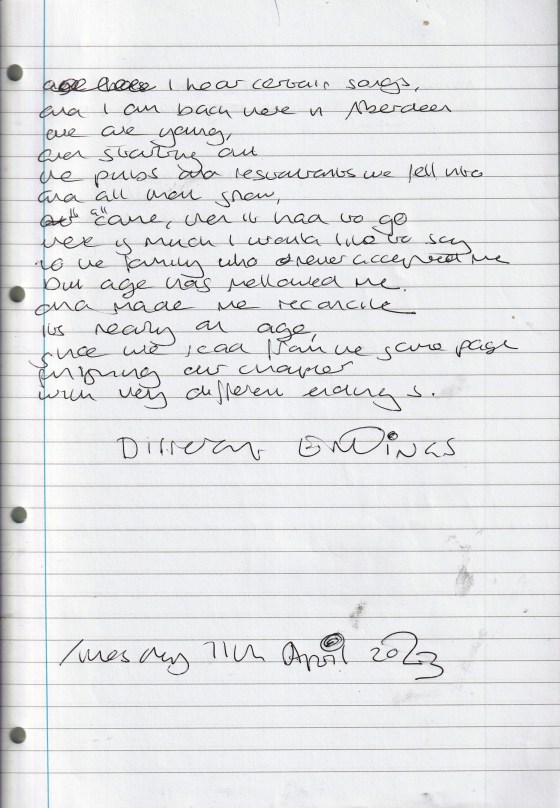 I hear certain songs,
and I am back there in Aberdeen
we are young,
over starting out
the pubs and restaurants we fell into
and all that snow,
came, then it had to go
there is much I would like to say
to the family who never accepted me
but age has mellowed me.
and made me reconcile
its nearly an age,
since we read from the same page
finishing our chapter
with very different endings.
Different Endings
Tuesday 11th April 2023